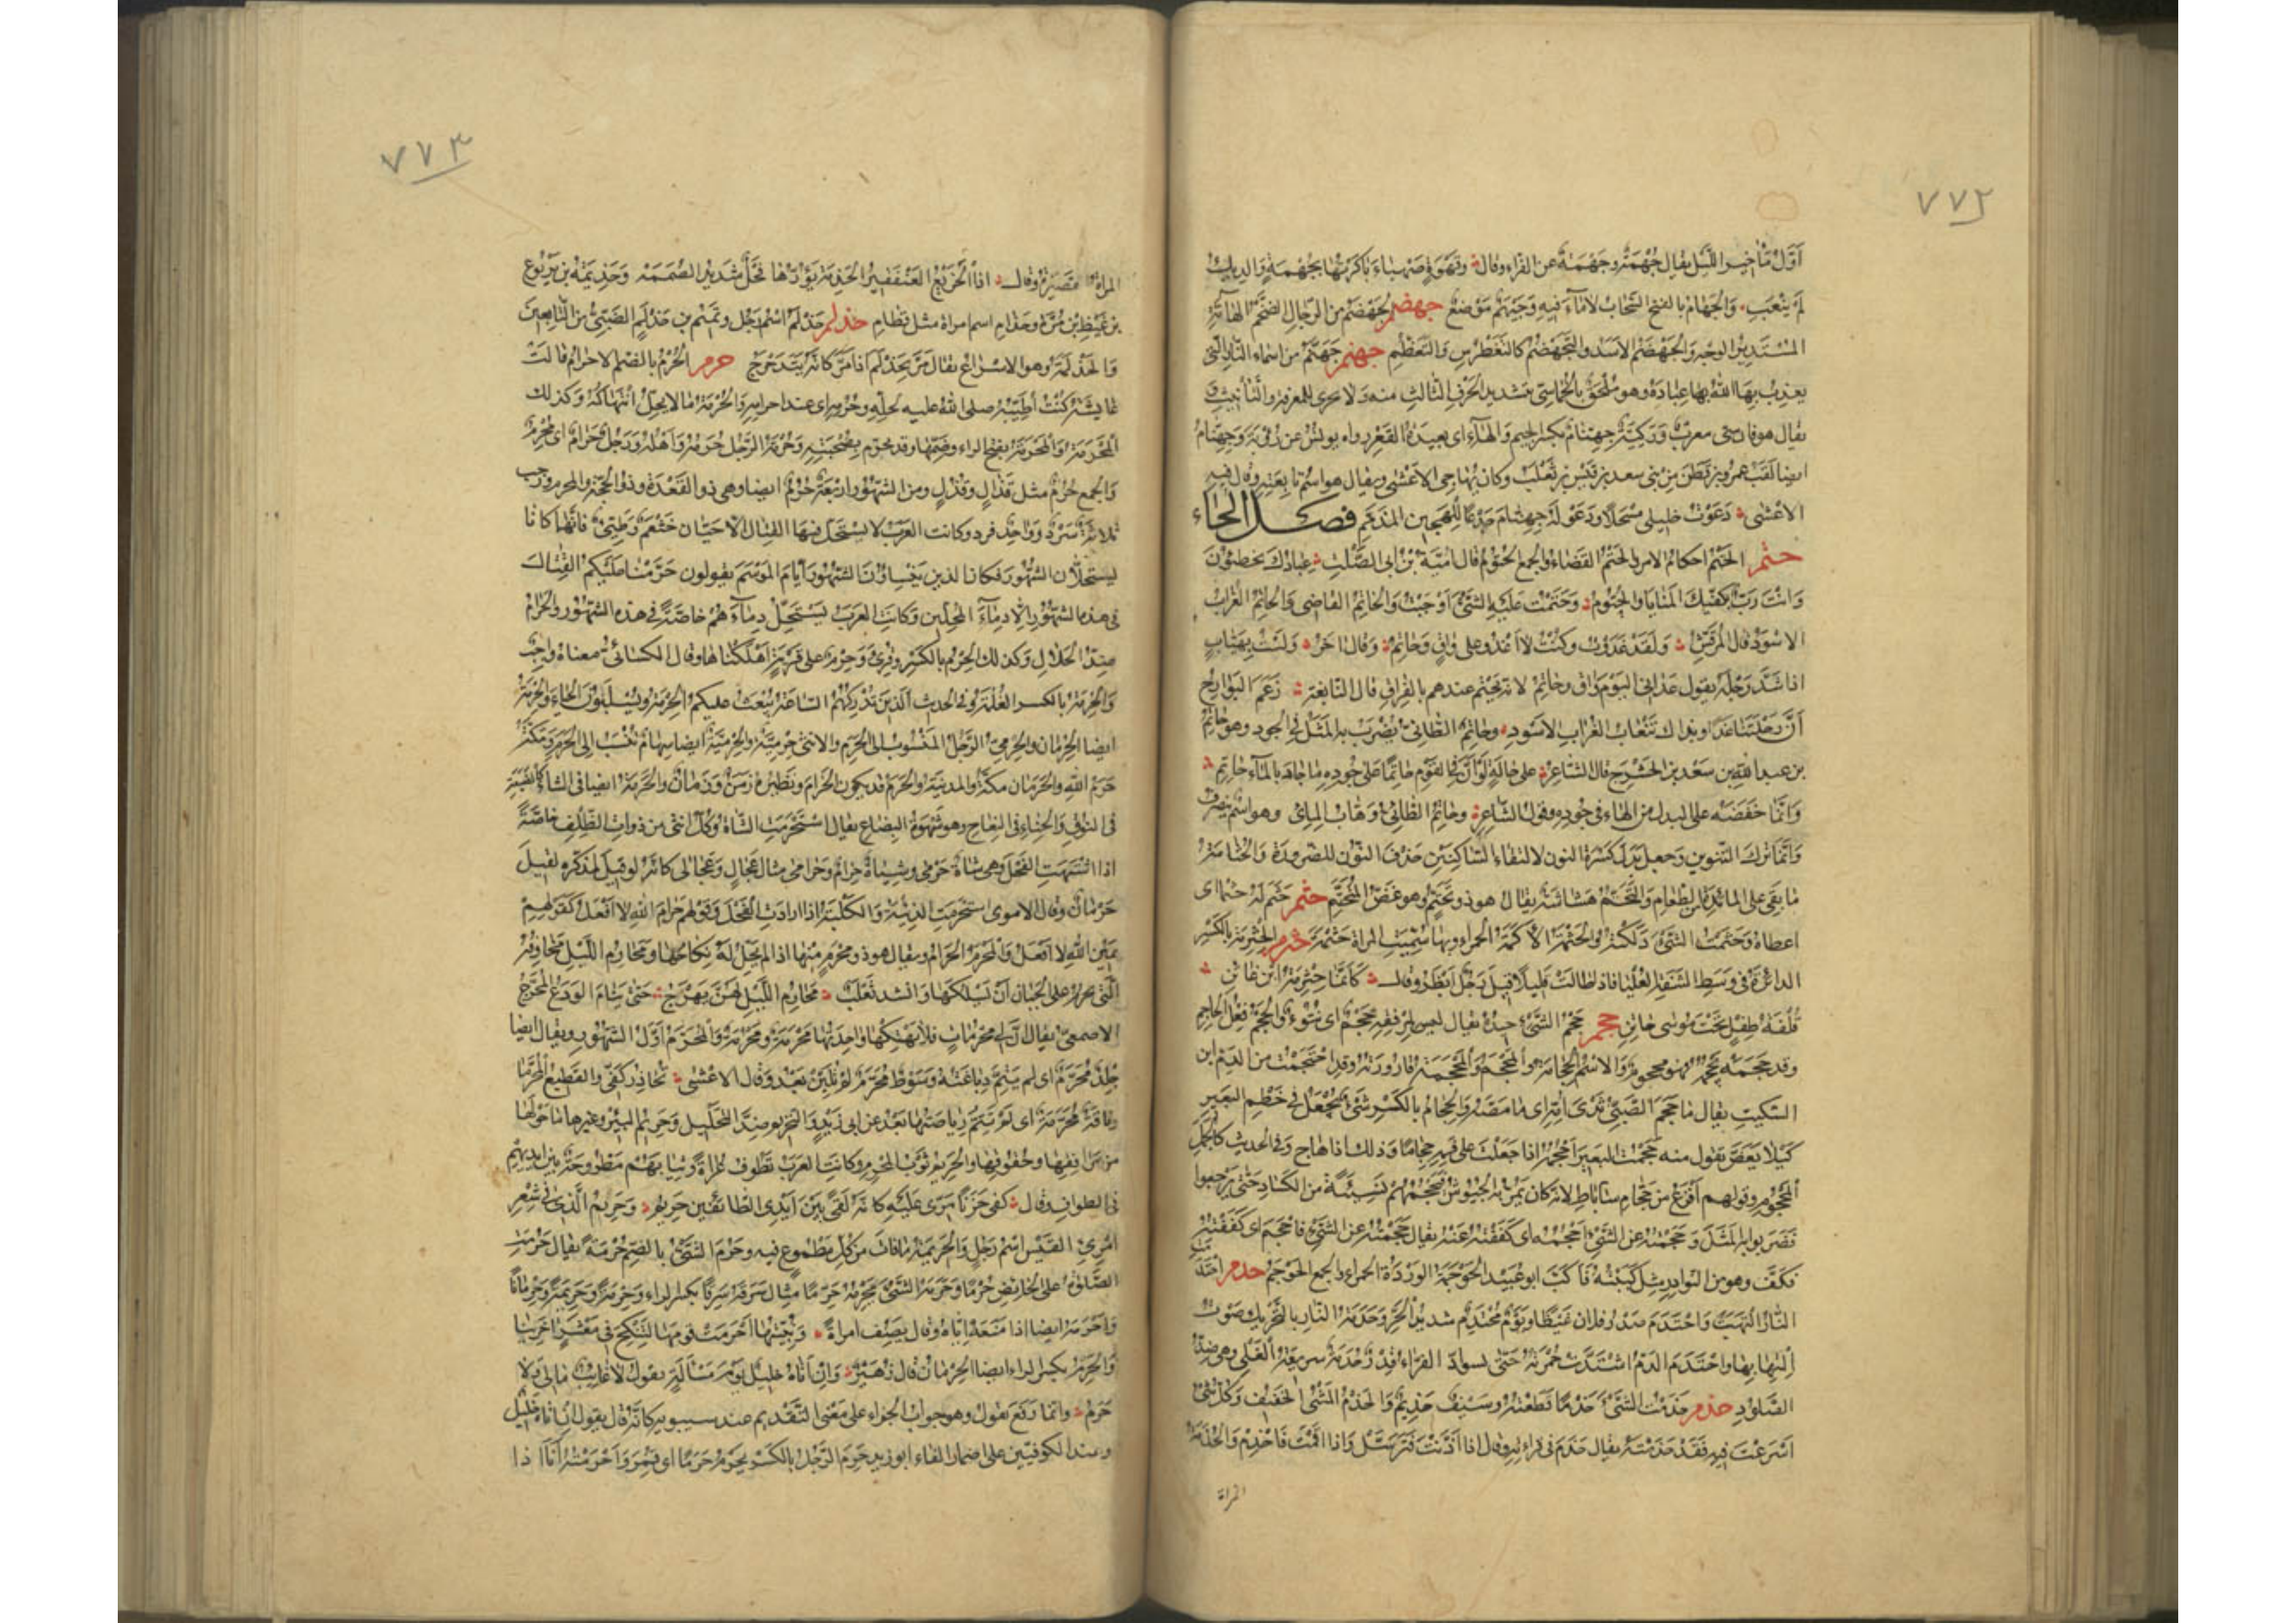 ٧٧٢
أَوَّلُ مَآخِيرِ اللَّيْلِ يقال جُهْمَةٌ وجَهْمَةٌ عن الفراء وقال وقَهْوَةٍ صَهْبَاءَ بَاكَرْتُهَا بجُهْمَةٍ والدِيكُ
لَمْ يَنْعَبِ والجَهَامُ بالفتح السَّحَابُ لاماءَ فيه وجَيْهَمُ مَوْضعٌ جهضم الجَهْضَمُ من الرِّجَالِ الضَّخْمُ الهَامَةِ
المُسْتَدِيرُ الوجْهِ والجَهْضَمُ الأسَدُ والتَّجَهْضُمُ كالتَّغَطْرُسِ والتَّعَظُّمِ جهنم جَهَنَّمُ من اسماءِ النَّارِ الَّتِى
يعذب بها اللهُ بها عِبادَهُ وهو مُلْحَقٌ بالخُمَاسِىّ بتشديد الحَرْفِ الثَّالِثِ منه ولا يجرى للمعرفة والتَّأنِيثِ و
يقال هو فارسى معربٌ ورَكِيَّةٌ جِهِنَّامٌ بكسر الجيم والهاء اى بعيدَةُ القَعْرِ رواه يونسُ عن رُؤْبَةَ وجِهِنَّامُ
ايضا لَقَبُ عمرو بن قَطَنٍ من بنى سعد بن قَيْسِ بن ثَعْلَبَ وكان يُهَاجِى الأعْشَى ويقال هو اسْمُ تَابِعَتِهِ وقال فيه
الاعْشَى دَعَوْتُ خليلى مِسْحَلًا ودَعَوْا لَهُ جِهِنَّامَ جَدْعًا لِلْهَجِينِ المُذَمَّمِ فصل الحاء
حتم الحَتْمُ احكام الامر والحَتْمُ القَضَاءُ والجمع الحُتُومُ قال اُمَيَّةُ بْنُ ابى الصَّلْتِ عِبَادُكَ يخطئُونَ
وانت رَبٌّ بكفيك المَنَايَا والحُتُومُ وحَتَمْتُ عليه الشَّىْءَ اَوْجَبْتُ والحَاتِمُ القَاضِى والحَاتِمُ الغُرَابُ
الاسْوَدُ قال المُرَقِّشُ ولَقَدْ غَدَوْتُ وكُنْتُ لا اَغْدُو على وَاقٍ وحَاتِمِ وقال اخَرُ ولَسْتُ بِهَيَّابٍ
اذا شَدَّ رَحْلَهُ يقول عَدَانِى اليَوْمَ وَاقٍ وحَاتِمُ لانه يَحْتِمُ عندهم بالفِرَاقِ قال النَّابِغَةُ زَعَمَ البَوَارِحُ
أَنَّ رِحْلَتَنَا غَدًا وبذاك تَنْعَابُ الغُرَابِ الأسْوَدِ وحَاتِمُ الطَّائِىُّ يُضْرَبُ به المَثَلُ فى الجود وهو حَاتِمُ
بن عبد اللهِ بن سَعْدِ بن الحَشْرَجِ قال الشَّاعِرُ على حالَةٍ لو اَنَّ فى القوم حَاتِمًا على جُودِهِ ما جاد بالمآءِ حَاتِمِ
وانَّمَا خَفَضَهُ على البدل من الهاء فى جودِهِ وقولُ الشَّاعِرِ وحَاتِمُ الطَّائِىُّ وَهَّابُ المِائى وهو اسْمٌ ينصرفُ
وانَّمَا تَرَكَ التَّنْوِينَ وجعل بَدَلَ كَسْرَةِ النون لالتقاء السَّاكِنَيْنِ حَذْفَ النون للضرورة والحُتَامَةُ
ما بقِىَ على المائدة من الطعام والتَّحَتُّمُ هَشَاشَةٌ يقال هو ذو تَحَتُّمٍ وهو غَضُّ المُتَحَتَّمِ حثم حَثَمَ لَهُ حَثْمًا اى
اعطاهُ وحَثَمْتُ الشَّىْءَ دَلَكْتُهُ والحَثْمَةُ الأكَمَةُ الحمراء وبها سُمِّيَتِ المرأة حَثْمَةَ حثرم الحِثْرِمَةُ بالكَسْرِ
الدائرةُ فى وَسَطِ الشَّفَةِ العُلْيَا فاذا طالت قليلًا قيل رَجُلٌ اَبْظَرُ وقال كَاَنَّمَا حِثْرِمَةُ ابن غابن
قُلْفَةُ طِفْلٍ تَحْتَ مُوسَى خاتِنِ حجم حَجْمُ الشَّىْءِ حيدُهُ يقال ليس لِمِرْفَقِهِ حَجْمٌ اى نُتُوءٌ والحَجْمُ فِعْلُ الحَاجِمِ
وقد حَجَمَهُ يَحْجُمُهُ فهو محجوم والاسْمُ الحِجَامَةُ والمِحْجَمُ والمِحْجَمَةُ قارورته وقد احْتَجَمْتُ من الدَمِ ابن
السِّكِّيتِ يقال ما حَجَمَ الصَّبِىُّ ثَدْىَ اُمِّهِ اى مَا مَصَّهُ والحِجَامُ بالكَسْرِ شَىْءٌ يُجْعَلُ فى خَطْمِ البَعِيرِ
كَيْلَا يَعَضَّ تقول منه حَجَمْتُ البعيرَ اَحْجُمُهُ اذا جَعَلْتَ على فيه حِجَامًا وذلك اذا هاج وفى الحديث كالجَمَلِ
المَحْجُومِ وقولهم اَفْرَغُ من حَجَّامِ سَابَاطِ لانه كان يَمُرُّ به الجُيُوشُ فيَحْجُمُهُمْ نَسِيئَةً من الكَسَادِ حَتَّى يَرْجِعُوا
فضربوا به المَثَلَ وحَجَمْتُهُ عن الشَّىْءِ اَحْجُمُهُ اى كَفَفْتُهُ عَنْهُ يقال حَجَمْتُهُ عن الشَّىْءِ فاَحْجَمَ اى كَفَفْتُهُ
فكَفَّ وهو من النوادرِ مثل كَبَبْتُهُ فَاَكَبَّ ابو عُبَيْد الحَوْجَمَةُ الوَرْدَةُ الحمراء والجمع الحَوْجَمُ حدم
النارُ الْتَهَبَتْ واحْتَدَمَ صَدْرُ فلان غَيْظًا ويَوْمٌ مُحْتَدِمٌ شديدُ الحَرِّ وحَدَمَةُ النَّارِ بالتحريك صَوْتُ
الْتِهَابِهَا واحْتَدَمَ الدَمُ اشْتَدَّتْ حُمْرَتُهُ حَتَّى يسوادّ الفرّاء قِدْرٌ حُدَمَةٌ سريعَةُ الغَلْىِ وهى ضِدُّ
الصَّلُودِ حذم حَذَمْتُ الشَّىْءَ حَذْمًا قَطَعْتُهُ وسَيْفٌ حَذِيمٌ والحَذْمُ المَشْىُ الخَفِيفُ وكلُّ شَىْءٍ
اَسْرَعْتَ فيه فَقَدْ حَذَمْتَهُ يقال حَذَمَ فى قراءتِهِ وقال اذا اَذَّنْتَ فَتَرَسَّلْ واذا اَقَمْتَ فَاحْذِمْ والحُذَمَةُ
المراة
٧٧٣
المرأةُ القَصِيرَةُ وقال اذا الخَرِيعُ العَنْقَفِيرُ الحُذَمَةُ يَؤُرُّهَا فَحْلٌ شَدِيدُ الصُّمَمَهْ وحَذِيمَةُ بن يَرْبُوعِ
بن غَيْظِ بْنِ مُرَّةَ وحَذَامِ اسم امراة مثل قَطَامِ حذلم حَذْلَمٌ اسْمُ رَجُل وتَمِيمُ بن حَذْلَمٍ الضَبِّىُّ من التَّابِعِينَ
والحَذْلَمَةُ وهو الاسْرَاعُ يقال مَرَّ يَتَحَذْلَمُ اذا مَرَّ كانَّهُ يَتَدَحْرَجُ حرم الحُرْمُ بالضم الاحْرَامُ قالت
عايشَةُ كُنْتُ أُطَيِّبُهُ صلى اللهُ عليه لحِلِّهِ وحُرْمِهِ اى عند احرامِهِ والحُرْمَةُ ما لا يحِلُّ انْتِهَاكُهُ وكذلك
المَحْرَمَةُ والمَحْرُمَةُ بفتح الراء وضَمِّهَا وقد تحَرَّم بصُحْبَتِهِ وحُرْمَةُ الرَّجُلِ حُرَمُهُ وَأَهْلُهُ ورَجُلٌ حَرَامٌ اى مُحْرِمٌ
والجمع حُرُمٌ مثل قَذَالٍ وقُذُلٍ ومن الشُّهُورِ اربَعَةٌ حُرُمٌ ايضا وهى ذو القَعْدَةِ وذو الحِجَّةِ والمحرم ورَجَبٌ
ثلاثَةٌ سَرْدٌ ووَاحِدٌ فرد وكانت العَرَبُ لا يستَحِلّ فيها القِتَالَ الّا حَيَّانِ خَثْعَمُ وطَيِّئُ فانَّهُمَا كَانَا
يستحلّان الشُّهُورَ وكانا الذين يَنْسِئُونَ الشُّهُورَ أيّامَ المَوْسِمِ يقولون حَرَّمْنَا عَلَيْكُمُ القِتَالَ
فى هذه الشُّهُورِ الّا دِمَآءَ المُحِلِّينَ وكانت العَرَبُ يستحِلُّ دِمَاءَهُمْ خاصَّةً فى هذه الشُّهُورِ والحَرَامُ
ضِدُّ الحَلَالِ وكذلك الحِرْمُ بالكَسْرِ وقُرِئَ وحِرْمٌ على قَرْيَةٍ اَهْلَكْنَاهَا وقال الكسَائىُّ معناهُ واجِبٌ
والحِرْمَةُ بالكسر الغُلْمَةُ وفى الحديث الَّذِينَ تُدْرِكُهُمُ السَّاعَةُ تُبْعَثُ عليهم الحِرْمَةُ ويُسْلَبُونَ الحَيَاءَ والحِرْمَةُ
ايضا الحِرْمَان والحِرْمِىُّ الرَّجُلُ المَنْسُوبُ الى الحَرَمِ والانثى حِرْمِيَّةٌ والحِرْمِيَّةُ ايضا سِهَامٌ تُنْسَبُ الى الحَرَمِ ومَكَّةُ
حَرَمُ اللهِ والحَرَمَانِ مكّةُ والمدينةُ والحَرَمُ قد يكون الحَرَامَ ونَظِيرُهُ زَمَنٌ وزَمَانٌ والحَرَمَةُ ايضا فى الشاءِ كالضَّبَعَةِ
فى النُوقِ والحِنَاءِ فى النِعَاجِ وهو شَهْوَةُ البِضَاعِ يقال اسْتَحْرَمَتِ الشَّاةُ وكُلُّ انثَى من ذوات الظِّلْفِ خاصَّةً
اذا اشْتَهَتِ الفَحْلَ وهى شاةٌ حَرْمَى وشِيَاهٌ حِرَامٌ وحَرَامَى مثال عِجَالٍ وعَجَالَى كانَّهُ لو قيل لمذكّره لقيل
حَرْمَانُ وقال الاموى استَحْرَمَتِ الذِئْبَةُ والكَلْبَةُ اذا ارادت الفَحْلَ وقولهم حَرَامَ اللهِ لا اَفْعَلُ كقولهم
يَمِينَ اللهِ لا اَفْعَلُ والمَحْرَمُ الحَرَامُ ويقال هو ذو مَحْرَمٍ منها اذا لم يَحِلَّ لَهُ نِكَاحُهَا ومَحَارِمُ اللَّيْلِ مَخَاوِفُهُ
الَّتى يحرم على الجَبَان اَنْ يَسْلُكَهَا وانشد ثَعْلَبٌ مَحَارِمُ اللَّيْلِ لهُنَّ بَهْرَجُ حَتَّى يَنَامَ الوَرَعُ المُحَرَّجُ
الاصمعىّ يقال انَّ لى مَحْرُمَاتٍ فلا تَهْتِكْهَا واحِدَتُهَا مَحْرَمَةٌ ومَحْرُمَةٌ والمُحَرَّمُ اَوَّلُ الشُّهُورِ ويقال ايضا
جِلْدٌ مُحَرَّمٌ اى لم يَتِمَّ دِبَاغَتُهُ وسَوْطٌ مُحَرَّمٌ لم يُلَيَّنْ بَعْدُ وقال الاعْشَى تُحَاذِرُ كَفِّى والقَطِيعَ المُحَرَّمَا
وناقَةٌ مُحَرَّمَةٌ اى لم يَتِمَّ رِيَاضَتُهَا بَعْدُ عن ابى زَيْدٍ والتحريم ضِدُّ التحليل وحَرِيمُ البِئْرِ وغيرها ما حَوْلَهَا
من مَرَافِقِهَا وحُقُوقِهَا والحَرِيمُ ثَوْبُ المُحْرِمِ وكانت العَرَبُ تَطُوفُ عُرَاةً وثِيَابُهُمْ مَطْرُوحَةٌ بين ايديهم
فى الطواف وقال كفَى حَزَنًا مَرِّى عَلَيْهِ كانَّهُ لَقًى بَيْنَ اَيْدِى الطَّائِفِينَ حَرِيمُ وحَرِيمُ الَّذِى فى شِعْرِ
امْرِئِ القَيْسِ اسْمُ رَجُلٍ والحَرِيمَةُ ما فاتَ من كُلِّ مَطْمُوعٍ فيه وحَرُمَ الشَّىْءُ بالضمّ حُرْمَةً يقال حَرُمَتِ
الصَّلوةُ على الحَائِضِ حُرْمًا وحَرَمَهُ الشَّىْءَ يَحْرِمُهُ حَرِمًا مِثَالُ سَرَقَهُ سَرِقًا بكسر الراء وحِرْمَةً وحَرِيمَةً وحِرْمَانًا
وَاَحْرَمَهُ ايضا اذا مَنَعَهُ ايّاهُ وقال يَصِفُ امراةً ونُبِّئْتُهَا اَحْرَمَتْ قومَهَا لِتَنْكِحَ فى مَعْشَرٍ اخَرِينَا
والحَرِمُ بكسر الراء ايضا الحِرْمَانُ قال زُهَيْرٌ وَاِنْ اَتَاهُ خَلِيلٌ يَوْمَ مَسْأَلَةٍ يقولُ لا غائبٌ مالى ولا
حَرِمُ وانّما رَفَعَ يقولُ وهو جوابُ الجزاءِ على مَعْنَى التَّقْدِيمِ عند سيبويه كانَّهُ قال يقولُ اِنْ اَتَاهُ خَلِيلٌ
وعند الكوفِيِّينَ على اضمار الفاء ابو زيدٍ حَرِمَ الرَّجُلُ بالكَسْرِ يَحْرَمُ حَرَمًا اى قُمِرَ وَاَحْرَمْتُهُ اَنَا اذا